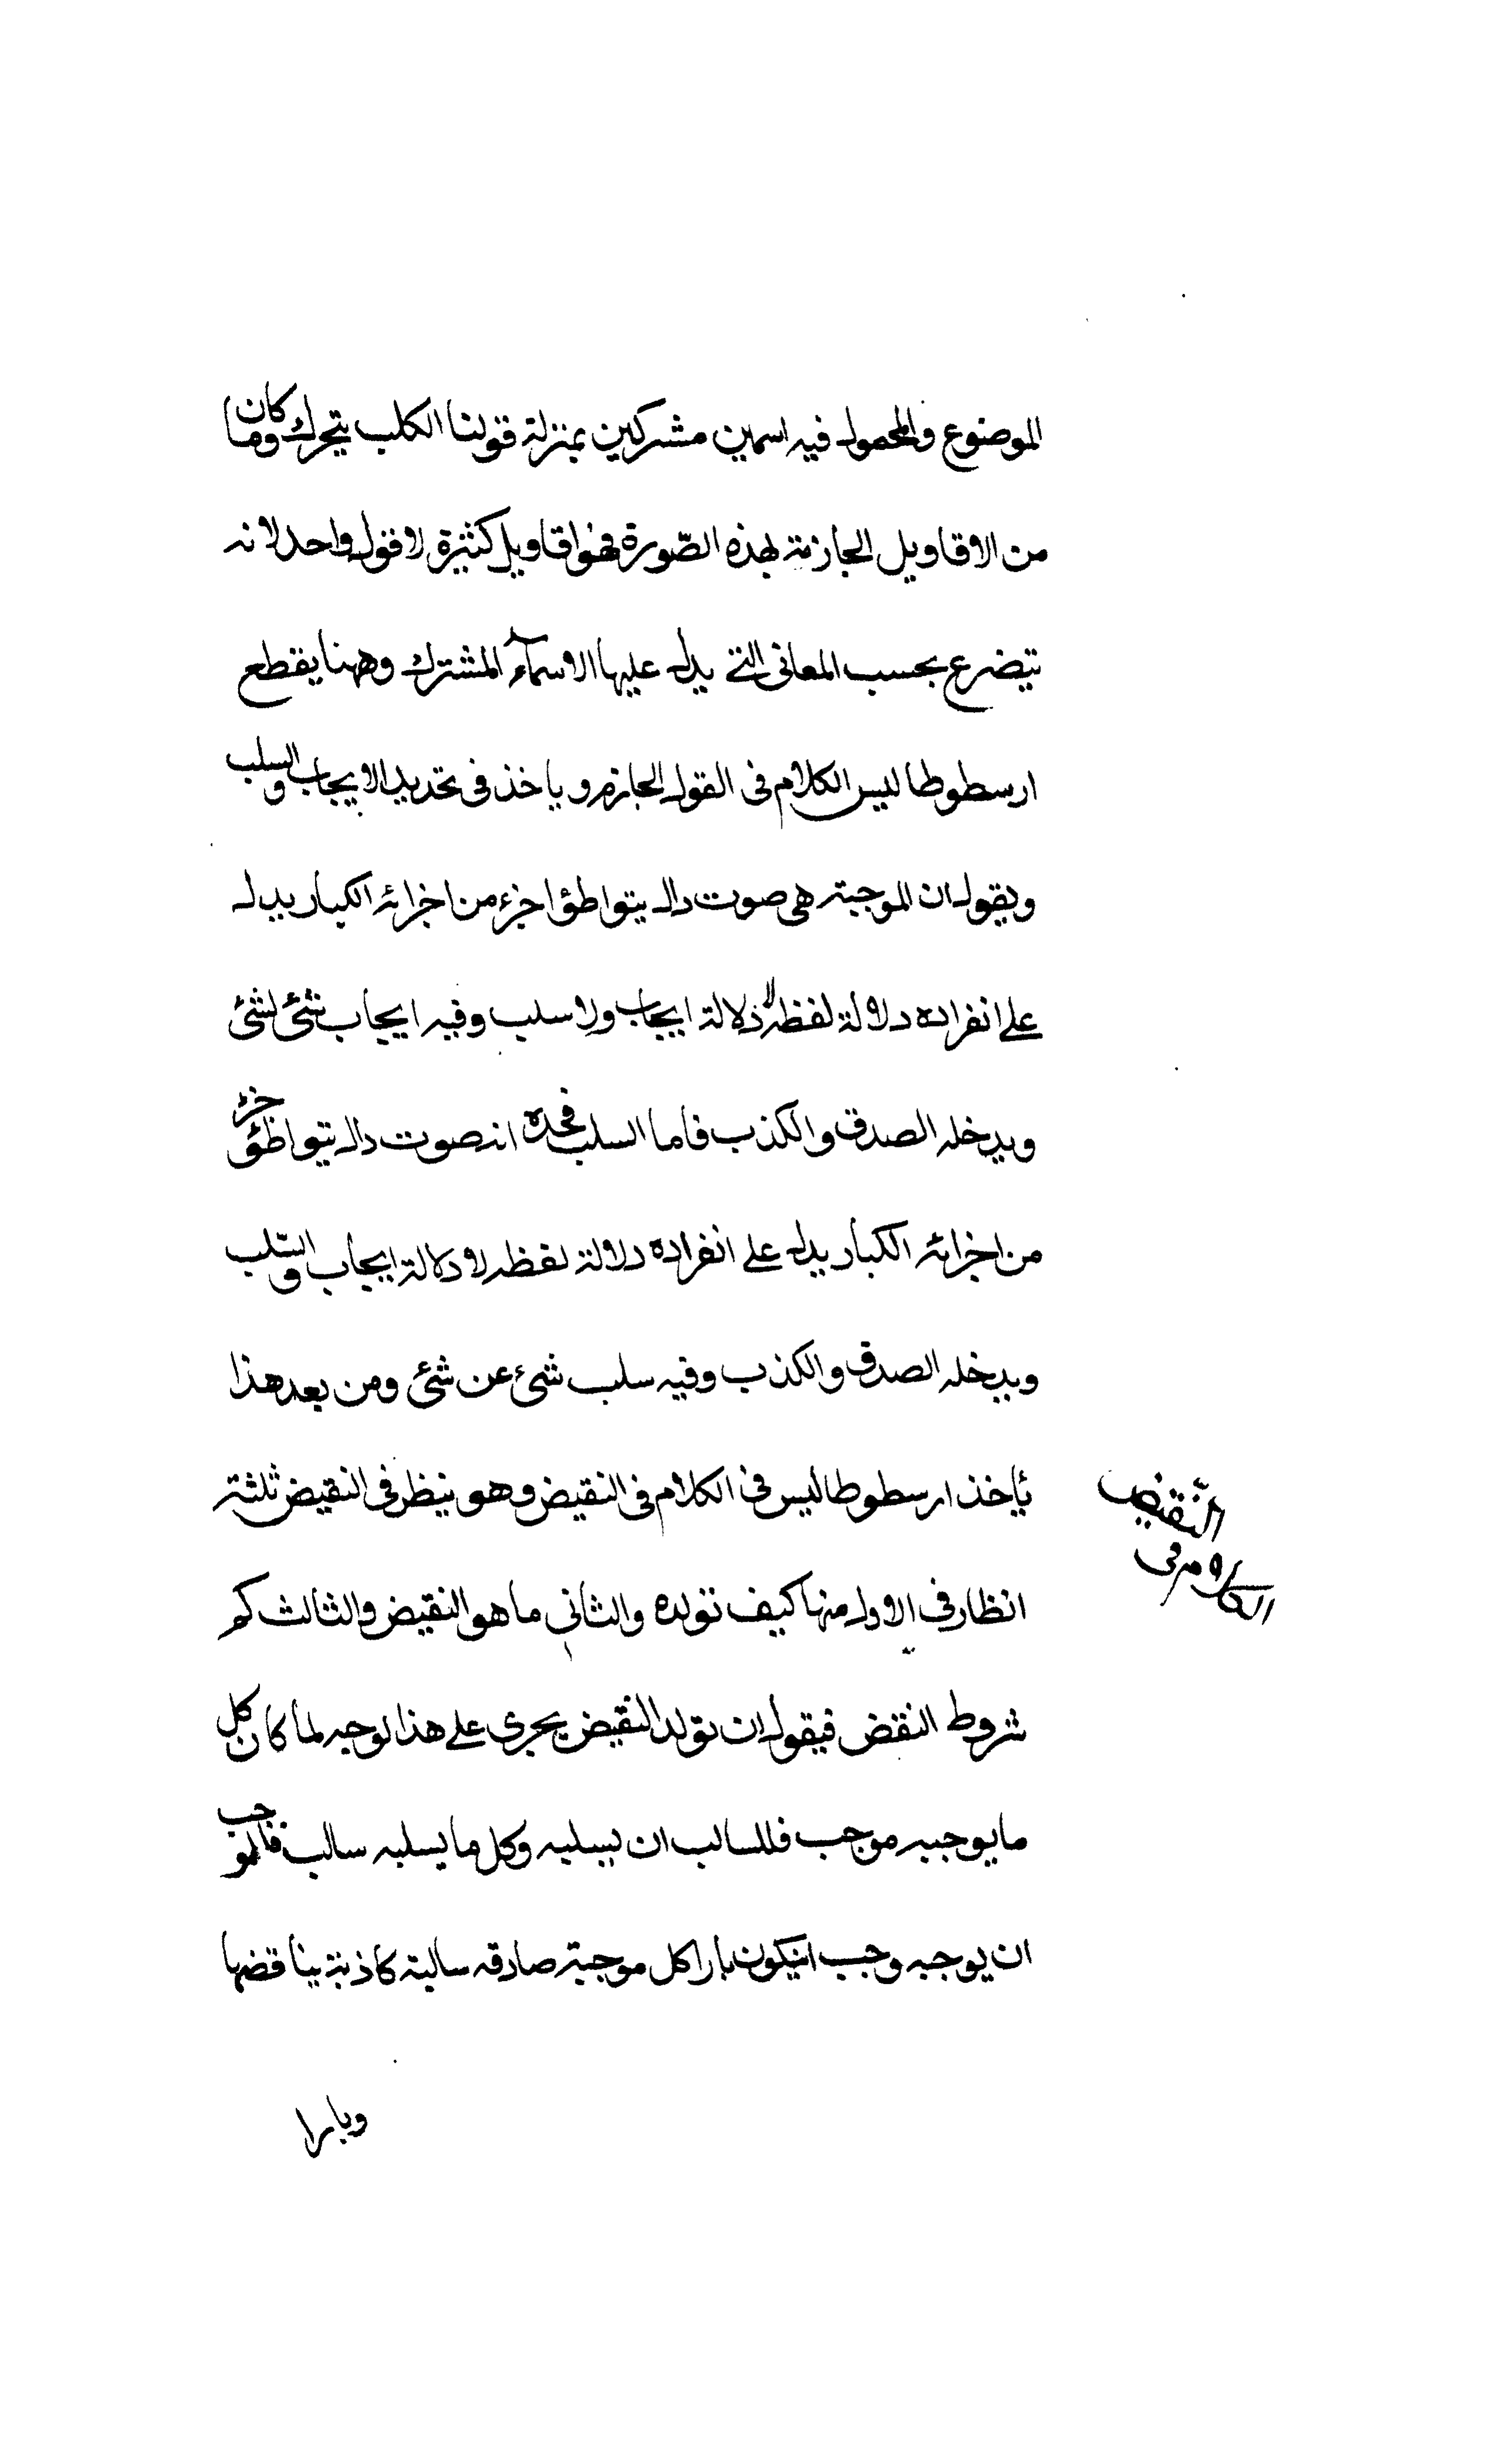 الموضوع والمحمول فيه اسمين مشركين بمنزلة قولنا الكلب يتحرك وما كان
من الاقاويل الجازمة بهذه الصّورة فهو اقاويل كثيرة لا قول واحد لانه
يتضرع بحسب المعانى التے يدل عليها الاسمآء المشترك وههنا يقطع
ارسطوطاليس الكلام فى القول الجازم وياخذ فى تحديد الايجاب والسلب
ويقول ان الموجبة هى صوت دال بتواطؤ اجزء من اجزائه الكبار يدل
علے انفراده دلالة لفظه لا دلالة ايجاب ولا سلب وفيه ايجاب شئ لشئ
ويدخله الصدق والكذب فاما السلب فحده انه صوت دال بتواطئ جزء
من اجزائه الكبار يدل علے انفراده دلالة لفظه لا دلالة ايجاب والسّلب
ويدخله الصدق والكذب وفيه سلب شئ عن شئ ومن بعد هذا
يأخذ ارسطوطاليس فى الكلام فى النقيض وهو ينظر فى النقيض ثلثة
الكلام فى النّقيض
انظار فى الاول منها كيف تولده والثانى ما هو النقيض والثالث كم
شروط النقض فيقول ان تولد النقيض يجرى علے هذا لوجه لما كان كل
ما يوجبه موجب فللسالب ان يسلبه وكل ما يسلبه سالب فالموجب
ان يوجبه وجب انيكون بارا كل موجبة صادقه سالبة كاذبة يناقضها
وبارا